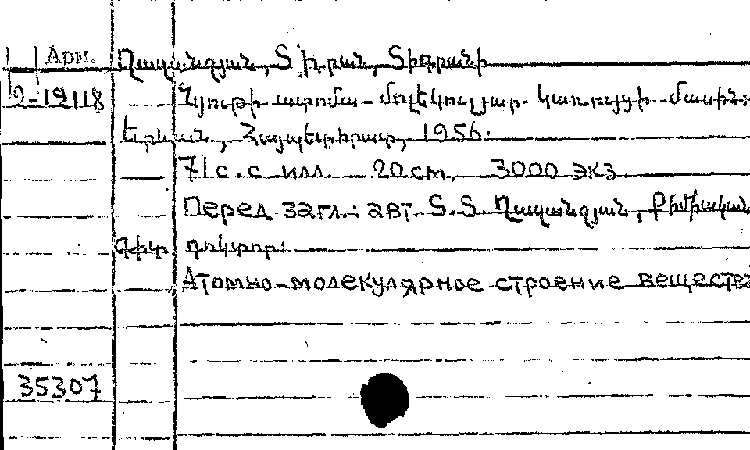 Арм. Ղազանջյան, Տիրան, Տիգրանի
2-12118 Նյութի ատոմա-մոլեկուլյար կառուցվածքի մասին:
Երևան, Հայպետհրատ, 1956.
71 с. с илл. 20 см. 3000 экз
Перед загл.: авт. Տ.Տ. Ղազանջյան, քիմիական
գիտ. դոկտոր:
Атомно-молекулярное строение вещества
35307